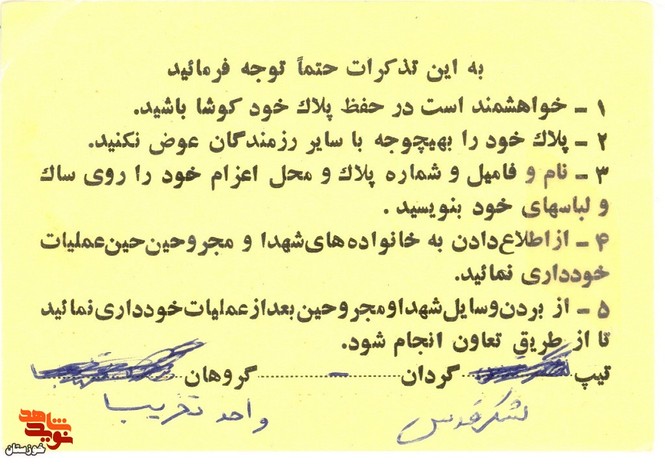 به این تذکرات حتماً توجه فرمائید
۱ ــ خواهشمند است در حفظ پلاك خود کوشا باشید.
۲ ــ پلاك خود را بهیچوجه با سایر رزمندگان عوض نکنید.
۳ ــ نام و فامیل و شماره پلاك و محل اعزام خود را روی ساك
و لباسهای خود بنویسید .
۴ ــ از اطلاع دادن به خانواده های شهدا و مجروحین حین عملیات
خودداری نمائید.
۵ ــ از بردن وسایل شهدا و مجروحین بعد از عملیات خودداری نمائید
تا از طریق تعاون انجام شود.
تیپ گردان گروهان
لشکر قدس واحد تخریب
شاهد
نوید
خوزستان